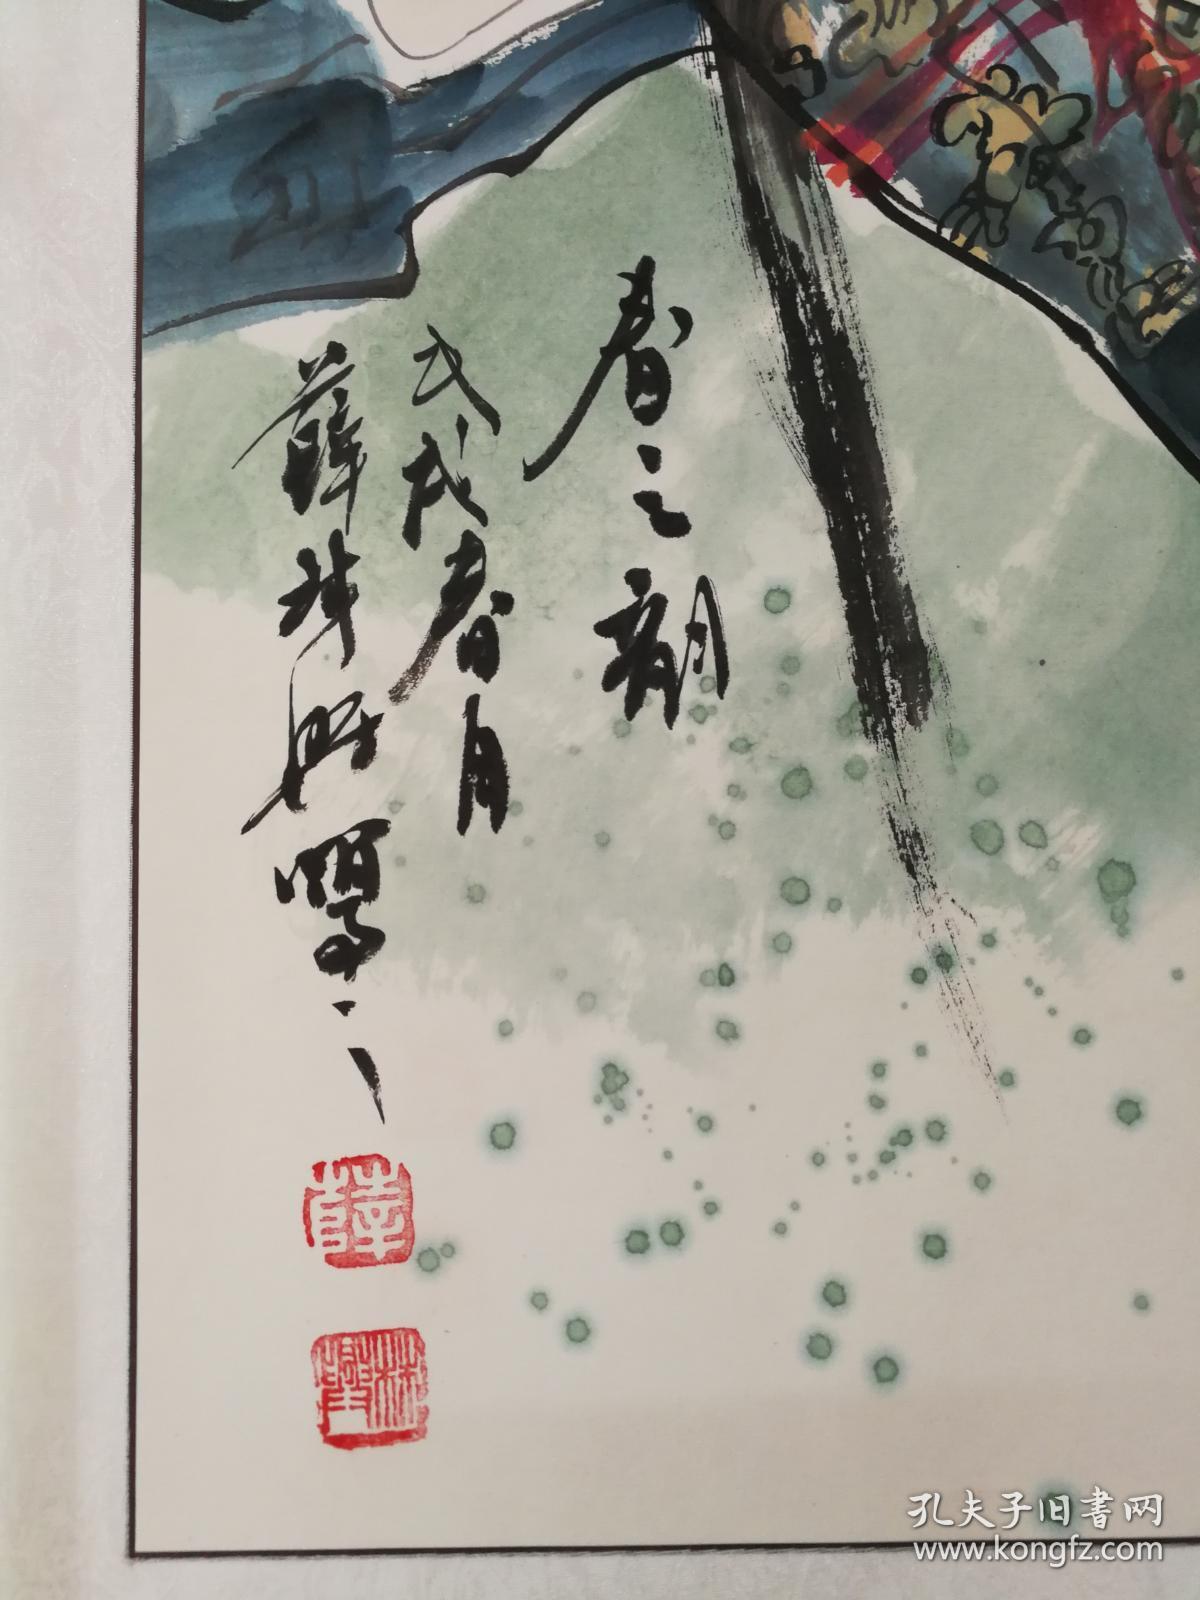 春之韵
戊戌春月
薛林興寫
薛
林興
孔夫子旧书网
www.kongfz.com